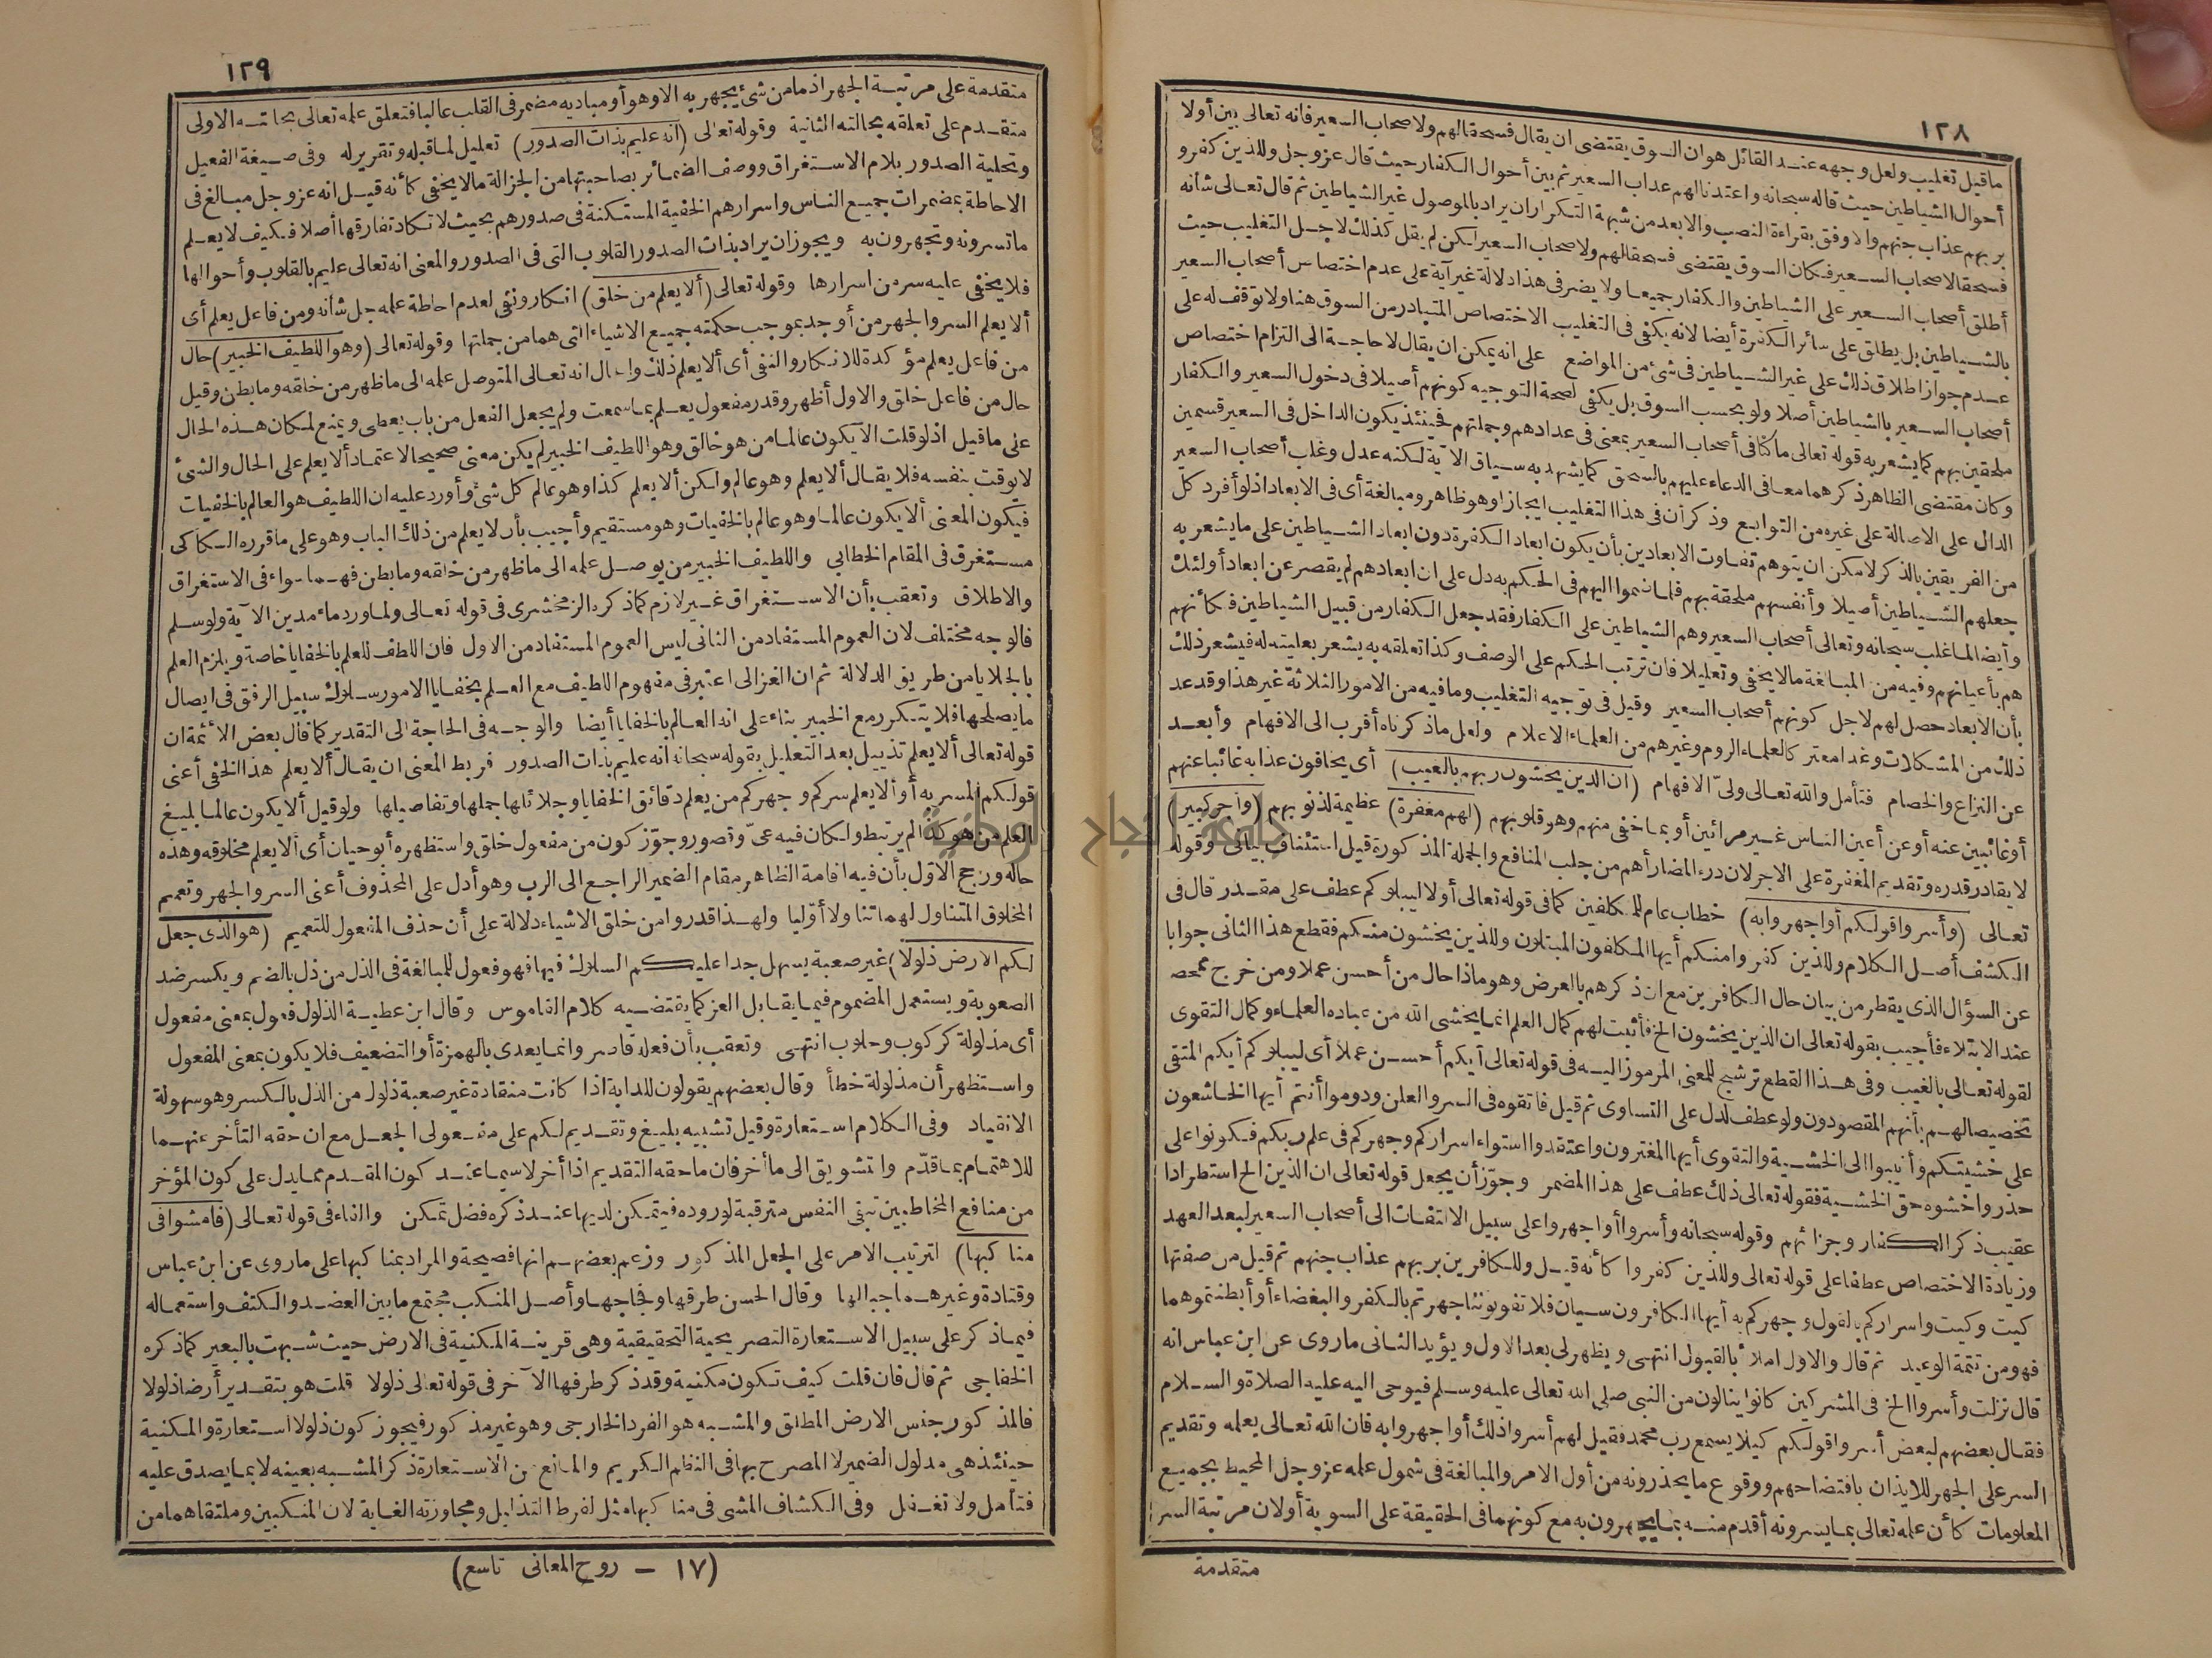 ١٢٨
ما قيل تغليب ولعل وجهه عند القائل هو ان السوق يقتضى ان يقال فسحقا لهم ولاصحاب السعير فانه تعالى بين أولا
أحوال الشياطين حيث قال سبحانه واعتدنا لهم عذاب السعير ثم بين أحوال الكفار حيث قال عز وجل وللذين كفروا
بربهم عذاب جهنم والاوفق بقراءة النصب والابعد من شبهة التكرار ان يراد بالموصول غير الشياطين ثم قال تعالى شأنه
فسحقا لاصحاب السعير فكان السوق يقتضى فسحقا لهم ولاصحاب السعير لكن لم يقل كذلك لاجل التغليب حيث
أطلق أصحاب السعير على الشياطين والكفار جميعا ولا يضر فى هذا دلالة غير آية على عدم اختصاص أصحاب السعير
بالشياطين بل يطلق على سائر الكفرة أيضا لانه يكفى فى التغليب الاختصاص المتبادر من السوق هنا ولا توقف له على
عدم جواز اطلاق ذلك على غير الشياطين فى شئ من المواضع على انه يمكن ان يقال لا حاجة الى التزام اختصاص
أصحاب السعير بالشياطين أصلا ولو بحسب السوق بل يكفى لصحة التوجيه كونهم أصيلا فى دخول السعير والكفار
ملحقين بهم كما يشعر به قوله تعالى ما كنا فى أصحاب السعير بمعنى فى عدادهم وجملتهم فحينئذ يكون الداخل فى السعير قسمين
وكان مقتضى الظاهر ذكرهما معا فى الدعاء عليهم بالسحق كما يشهد به سياق الآية لكنه عدل وغلب أصحاب السعير
الدال على الاصالة على غيره من التوابع وذكر أن فى هذا التغليب ايجازا وهو ظاهر ومبالغة أى فى الابعاد اذ لو أفرد كل
من الفريقين بالذكر لامكن ان يتوهم تفاوت الابعادين بأن يكون ابعاد الكفرة دون ابعاد الشياطين على ما يشعر به
جعلهم الشياطين أصيلا وأنفسهم ملحقة بهم فلما ضموا اليهم فى الحكم به دل على ان ابعادهم لم يقصر عن ابعاد أولئك
وأيضا لما غلب سبحانه وتعالى أصحاب السعير وهم الشياطين على الكفار فقد جعل الكفار من قبيل الشياطين فكأنهم
هم بأعيانهم وفيه من المبالغة ما لا يخفى وتعليلا فان ترتب الحكم على الوصف وكذا تعلقه به يشعر بعليته له فيشعر ذلك
بأن الابعاد حصل لهم لاجل كونهم أصحاب السعير وقيل فى توجيه التغليب وما فيه من الامور الثلاثة غير هذا وقد عد
ذلك من المشكلات وغدا معتركا للعلماء الروم وغيرهم من العلماء الاعلام ولعل ما ذكرناه أقرب الى الافهام وأبعد
عن النزاع والخصام فتأمل والله تعالى ولىّ الافهام (ان الذين يخشون ربهم بالغيب) أى يخافون عذابه غائبا عنهم
أو غائبين عنه أو عن أعين الناس غير مرائين أو بما خفى منهم وهو قلوبهم (لهم مغفرة) عظيمة لذنوبهم (وأجر كبير)
لا يقادر قدره وتقديم المغفرة على الاجر لان درء المضار أهم من جلب المنافع والجملة المذكورة قيل استئناف بيانى وقوله
تعالى (وأسروا قولكم أو اجهروا به) خطاب عام للمكلفين كما فى قوله تعالى أولا ليبلوكم عطف على مقدر قال فى
الكشف أصل الكلام وللذين كفروا منكم أيها المكلفون المبتلون وللذين يخشون منكم فقطع هذا الثانى جوابا
عن السؤال الذى يقطر من بيان حال الكافرين مع ان ذكرهم بالعرض وهو ماذا حال من أحسن عملا ومن خرج ممحصا
عند الابتلاء فأجيب بقوله تعالى ان الذين يخشون الخ فأثبت لهم كمال العلم انما يخشى الله من عباده العلماء وكمال التقوى
لقوله تعالى بالغيب وفى هذا القطع ترشيح للمعنى المرموز اليه فى قوله تعالى أيكم أحسن عملا أى ليبلوكم أيكم المتقى
تخصيصا لهم بأنهم المقصودون ولو عطف لدل على التساوى ثم قيل فاتقوه فى السر والعلن ودوموا أنتم أيها الخاشعون
على خشيتكم وأنيبوا الى الخشية والتقوى أيها المغترون واعتقدوا استواء اسراركم وجهركم فى علم ربكم فكونوا على
حذر واخشوه حق الخشية فقوله تعالى ذلك عطف على هذا المضمر وجوّز أن يجعل قوله تعالى ان الذين الخ استطرادا
عقيب ذكر الكفار وجزائهم وقوله سبحانه وأسروا أو اجهروا على سبيل الالتفات الى أصحاب السعير لبعد العهد
وزيادة الاختصاص عطفا على قوله تعالى وللذين كفروا كأنه قيل وللكافرين بربهم عذاب جهنم ثم قيل من صفتها
كيت وكيت واسراركم بالقول وجهركم به أيها الكافرون سيان فلا تفوتوننا جهرتم بالكفر والبغضاء أو أبطنتموهما
فهو من تتمة الوعيد ثم قال والاول املأ بالقبول انتهى ويظهر لى بعد الاول ويؤيد الثانى ما روى عن ابن عباس انه
قال نزلت وأسروا الخ فى المشركين كانوا ينالون من النبى صلى الله تعالى عليه وسلم فيوحى اليه عليه الصلاة والسلام
فقال بعضهم لبعض أسروا قولكم كيلا يسمع رب محمد فقيل لهم أسروا ذلك أو اجهروا به فان الله تعالى يعلمه وتقديم
السر على الجهر للايذان بافتضاحهم ووقوع ما يحذرونه من أول الامر والمبالغة فى شمول علمه عز وجل المحيط بجميع
المعلومات كأن علمه تعالى بما يسرونه أقدم منه بما يجهرون به مع كونهما فى الحقيقة على السوية أو لان مرتبة السر
متقدمة
١٢٩
متقدمة على مرتبة الجهر اذ ما من شئ يجهر به الا وهو أو مباديه مضمر فى القلب غالبا فتعلق علمه تعالى بحالته الاولى
متقدم على تعلقه بحالته الثانية وقوله تعالى (انه عليم بذات الصدور) تعليل لما قبله وتقرير له وفى صيغة الفعيل
وتحلية الصدور بلام الاستغراق ووصف الضمائر بصاحبتها من الجزالة ما لا يخفى كأنه قيل انه عز وجل مبالغ فى
الاحاطة بمضمرات جميع الناس واسرارهم الخفية المستكنة فى صدورهم بحيث لا تكاد تفارقها أصلا فكيف لا يعلم
ما تسرونه وتجهرون به ويجوز ان يراد بذات الصدور القلوب التى فى الصدور والمعنى انه تعالى عليم بالقلوب وأحوالها
فلا يخفى عليه سر من اسرارها وقوله تعالى (ألا يعلم من خلق) انكار ونفى لعدم احاطة علمه جل شأنه ومن فاعل يعلم أى
ألا يعلم السر والجهر من أوجد بموجب حكمته جميع الاشياء التى هما من جملتها وقوله تعالى (وهو اللطيف الخبير) حال
من فاعل يعلم مؤكدة للانكار والنفى أى ألا يعلم ذلك والحال انه تعالى المتوصل علمه الى ما ظهر من خلقه وما بطن وقيل
حال من فاعل خلق والاول أظهر وقدر مفعول يعلم بما سمعت ولم يجعل الفعل من باب يعطى ويمنع لمكان هذه الحال
على ما قيل اذ لو قلت ألا يكون عالما من هو خالق وهو اللطيف الخبير لم يكن معنى صحيحا لاعتماد ألا يعلم على الحال والشئ
لا يوقت بنفسه فلا يقال ألا يعلم وهو عالم ولكن ألا يعلم كذا وهو عالم كل شئ وأورد عليه ان اللطيف هو العالم بالخفيات
فيكون المعنى ألا يكون عالما وهو عالم بالخفيات وهو مستقيم وأجيب بأن لا يعلم من ذلك الباب وهو على ما قرره السكاكى
مستغرق فى المقام الخطابى واللطيف الخبير من يوصل علمه الى ما ظهر من خلقه وما بطن فهما سواء فى الاستغراق
والاطلاق وتعقب بأن الاستغراق غير لازم كما ذكره الزمخشرى فى قوله تعالى ولما ورد ماء مدين الآية ولو سلم
فالوجه مختلف لان العموم المستفاد من الثانى ليس العموم المستفاد من الاول فان اللطف للعلم بالخفايا خاصة ويلزم العلم
بالجلايا من طريق الدلالة ثم ان الغزالى اعتبر فى مفهوم اللطيف مع العلم بخفايا الامور سلوك سبيل الرفق فى ايصال
ما يصلحها فلا يتكرر مع الخبير بناء على انه العالم بالخفايا أيضا والوجه فى الحاجة الى التقدير كما قال بعض الائمة ان
قوله تعالى ألا يعلم تذييل بعد التعليل بقوله سبحانه انه عليم بذات الصدور فربط المعنى ان يقال ألا يعلم هذا الخفى أعنى
قولكم المسر به أو ألا يعلم سركم وجهركم من يعلم دقائق الخفايا وجلائلها جملها وتفاصيلها ولو قيل ألا يكون عالما بليغ
العلم من هو كذا لم يرتبط ولكان فيه عىّ وقصور وجوّز كون من مفعول خلق واستظهره أبو حيان أى ألا يعلم مخلوقه وهذه
حاله ورجح الاوّل بأن فيه اقامة الظاهر مقام الضمير الراجع الى الرب وهو أدل على المحذوف أعنى السر والجهر وتعميم
المخلوق المتناول لهما تناولا أوّليا ولهذا قدروا من خلق الاشياء دلالة على أن حذف المفعول للتعميم (هو الذى جعل
لكم الارض ذلولا) غير صعبة يسهل جدا عليكم السلوك فيها فهو فعول للمبالغة فى الذل من ذل بالضم ويكسر ضد
الصعوبة ويستعمل المضموم فيما يقابل العز كما يقتضيه كلام القاموس وقال ابن عطية الذلول فعول بمعنى مفعول
أى مذلولة كركوب وحلوب انتهى وتعقب بأن فعله قاصر وانما يعدى بالهمزة أو التضعيف فلا يكون بمعنى المفعول
واستظهر أن مذلولة خطأ وقال بعضهم يقولون للدابة اذا كانت منقادة غير صعبة ذلول من الذل بالكسر وهو سهولة
الانقياد وفى الكلام استعارة وقيل تشبيه بليغ وتقديم لكم على مفعولى الجعل مع ان حقه التأخر عنهما
للاهتمام بما قدّم والتشويق الى ما أخر فان ما حقه التقديم اذا أخر لا سيما عند كون المقدم مما يدل على كون المؤخر
من منافع المخاطبين تبقى النفس مترقبة لوروده فيتمكن لديها عند ذكره فضل تمكن والفاء فى قوله تعالى (فامشوا فى
مناكبها) لترتيب الامر على الجعل المذكور وزعم بعضهم انها فصيحة والمراد بمناكبها على ما روى عن ابن عباس
وقتادة وغيرهما جبالها وقال الحسن طرقها وفجاجها وأصل المنكب مجتمع ما بين العضد والكتف واستعماله
فيما ذكر على سبيل الاستعارة التصريحية التحقيقية وهى قرينة المكنية فى الارض حيث شبهت بالبعير كما ذكره
الخفاجى ثم قال فان قلت كيف تكون مكنية وقد ذكر طرفها الآخر فى قوله تعالى ذلولا قلت هو بتقدير أرضا ذلولا
فالمذكور جنس الارض المطلق والمشبه هو الفرد الخارجى وهو غير مذكور فيجوز كون ذلولا استعارة والمكنية
حينئذ هى مدلول الضمير لا المصرح بها فى النظم الكريم والمانع من الاستعارة ذكر المشبه بعينه لا بما يصدق عليه
فتأمل ولا تغفل وفى الكشاف المشى فى مناكبها مثل لفرط التذليل ومجاوزته الغاية لان المنكبين وملتقاهما من
(١٧ – روح المعانى تاسع)
جامعة النجاح الوطنية